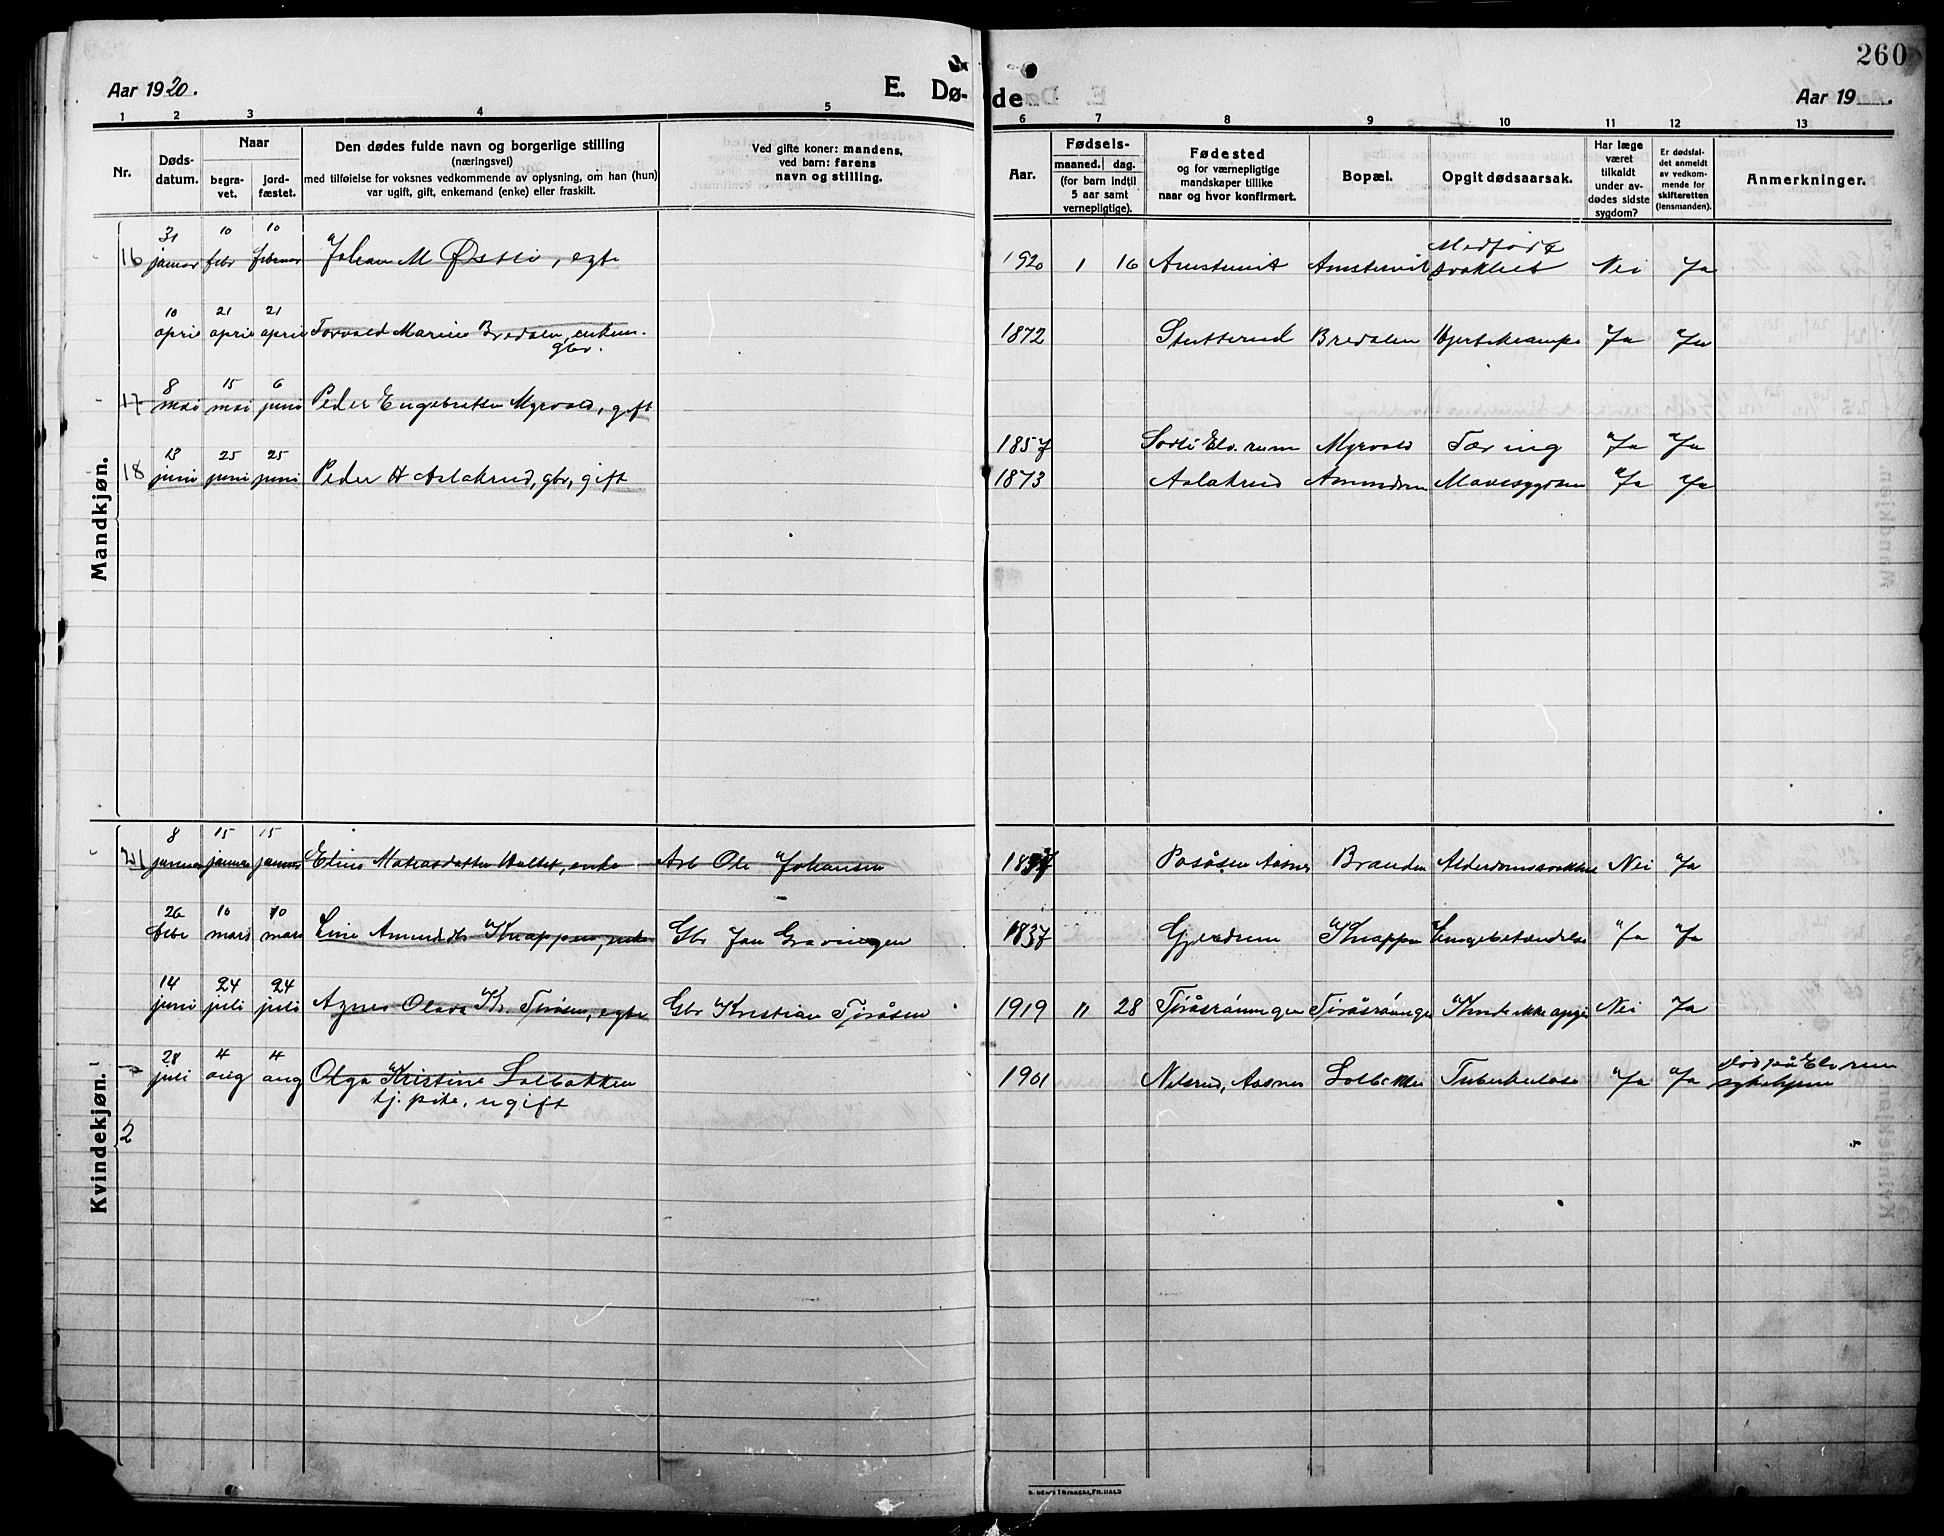 260
Aar 1920.
E. Dø-
de
Aar 19 .
1 2 3 4 5 6 7 8 9 10 11 12 13
Nr.
Døds-
datum.
Naar
begra-
vet.
jord-
fæstet.
Den dødes fulde navn og borgerlige stilling
(næringsvei)
med tilføielse for voksnes vedkommende av oplysning, om han (hun)
var ugift, gift, enkemand (enke) eller fraskilt.
Ved gifte koner: mandens,
ved barn: farens
navn og stilling.
Aar.
Fødsels-
maaned. dag.
(for barn indtil
5 aar samt
vernepligtige).
Fødested
og for værnepligtige
mandskaper tillike
naar og hvor konfirmert.
Bopæl.
Opgit dødsaarsak.
Har læge
været
tilkaldt
under av-
dødes sidste
sygdom?
Er dødsfal-
det anmeldt
av vedkom-
mende for
skifteretten
(lensmanden).
Anmerkninger.
Mandkjøn.
31 10 10
16 januar febr februar Johan M , egte 1920 1 16 Nei Ja
Medfødt
svakhet
10 21 21
april april april Torvald Marius Bredalen, enkem. 1872 Stutterud Bredalen Hjertekrampe Ja Ja
gbr.
8 15 6
17 mai mai juni Peder Engebretsen Myrvold, gift
1857 Elverum Myrvold Tæring Ja Ja
13 25 25
18 juni juni juni Peder H Aslakrud, gbr, gift 1873 Aslakrud Mavesygdom Ja Ja
Kvindekjøn.
8 15 15
21 januar januar januar Eline enke Arb Ole Johansen Aasnes Branden Nei Ja
26 10 10
febr mars mars Line Knappen, enke Gbr Jan 1837 Gjerdrum Knappen Lungebetændelse Ja Ja
14 24 24
juni juli juli Agnes Olava Kr. Toråsen, egte Gbr Kristian Toråsen 1919 11 28 Nei Ja
28 4 4
juli aug aug Olga Kristine Solbakken 1901 Aasnes Solbakken Tuberkulose Ja Ja
tj. pike, ugift
Død på Elverum
sykehjem
2